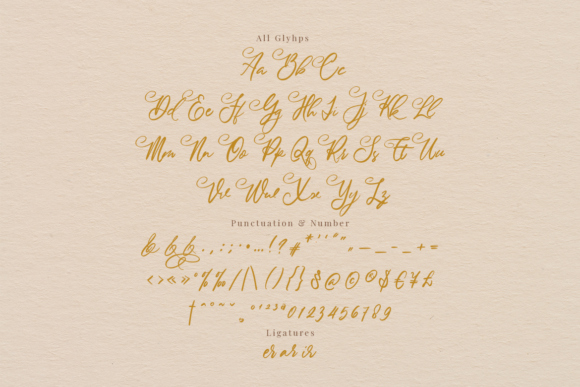 All Glyhps
Aa Bb Cc
Dd Ee Ff Gg Hh Ii Jj Kk Ll
Mm Nn Oo Pp Qq Rr Ss Tt Uu
Vv Ww Xx Yy Zz
Punctuation & Number
. , : ; · • … ! ? # * ' ' " " „ — – - _ + =
‹ › « » ° % ‰ / | \ ( ) { } § @ © ® $ € ¥ £
† 0 1 2 3 4 5 6 7 8 9
Ligatures
er ar ir